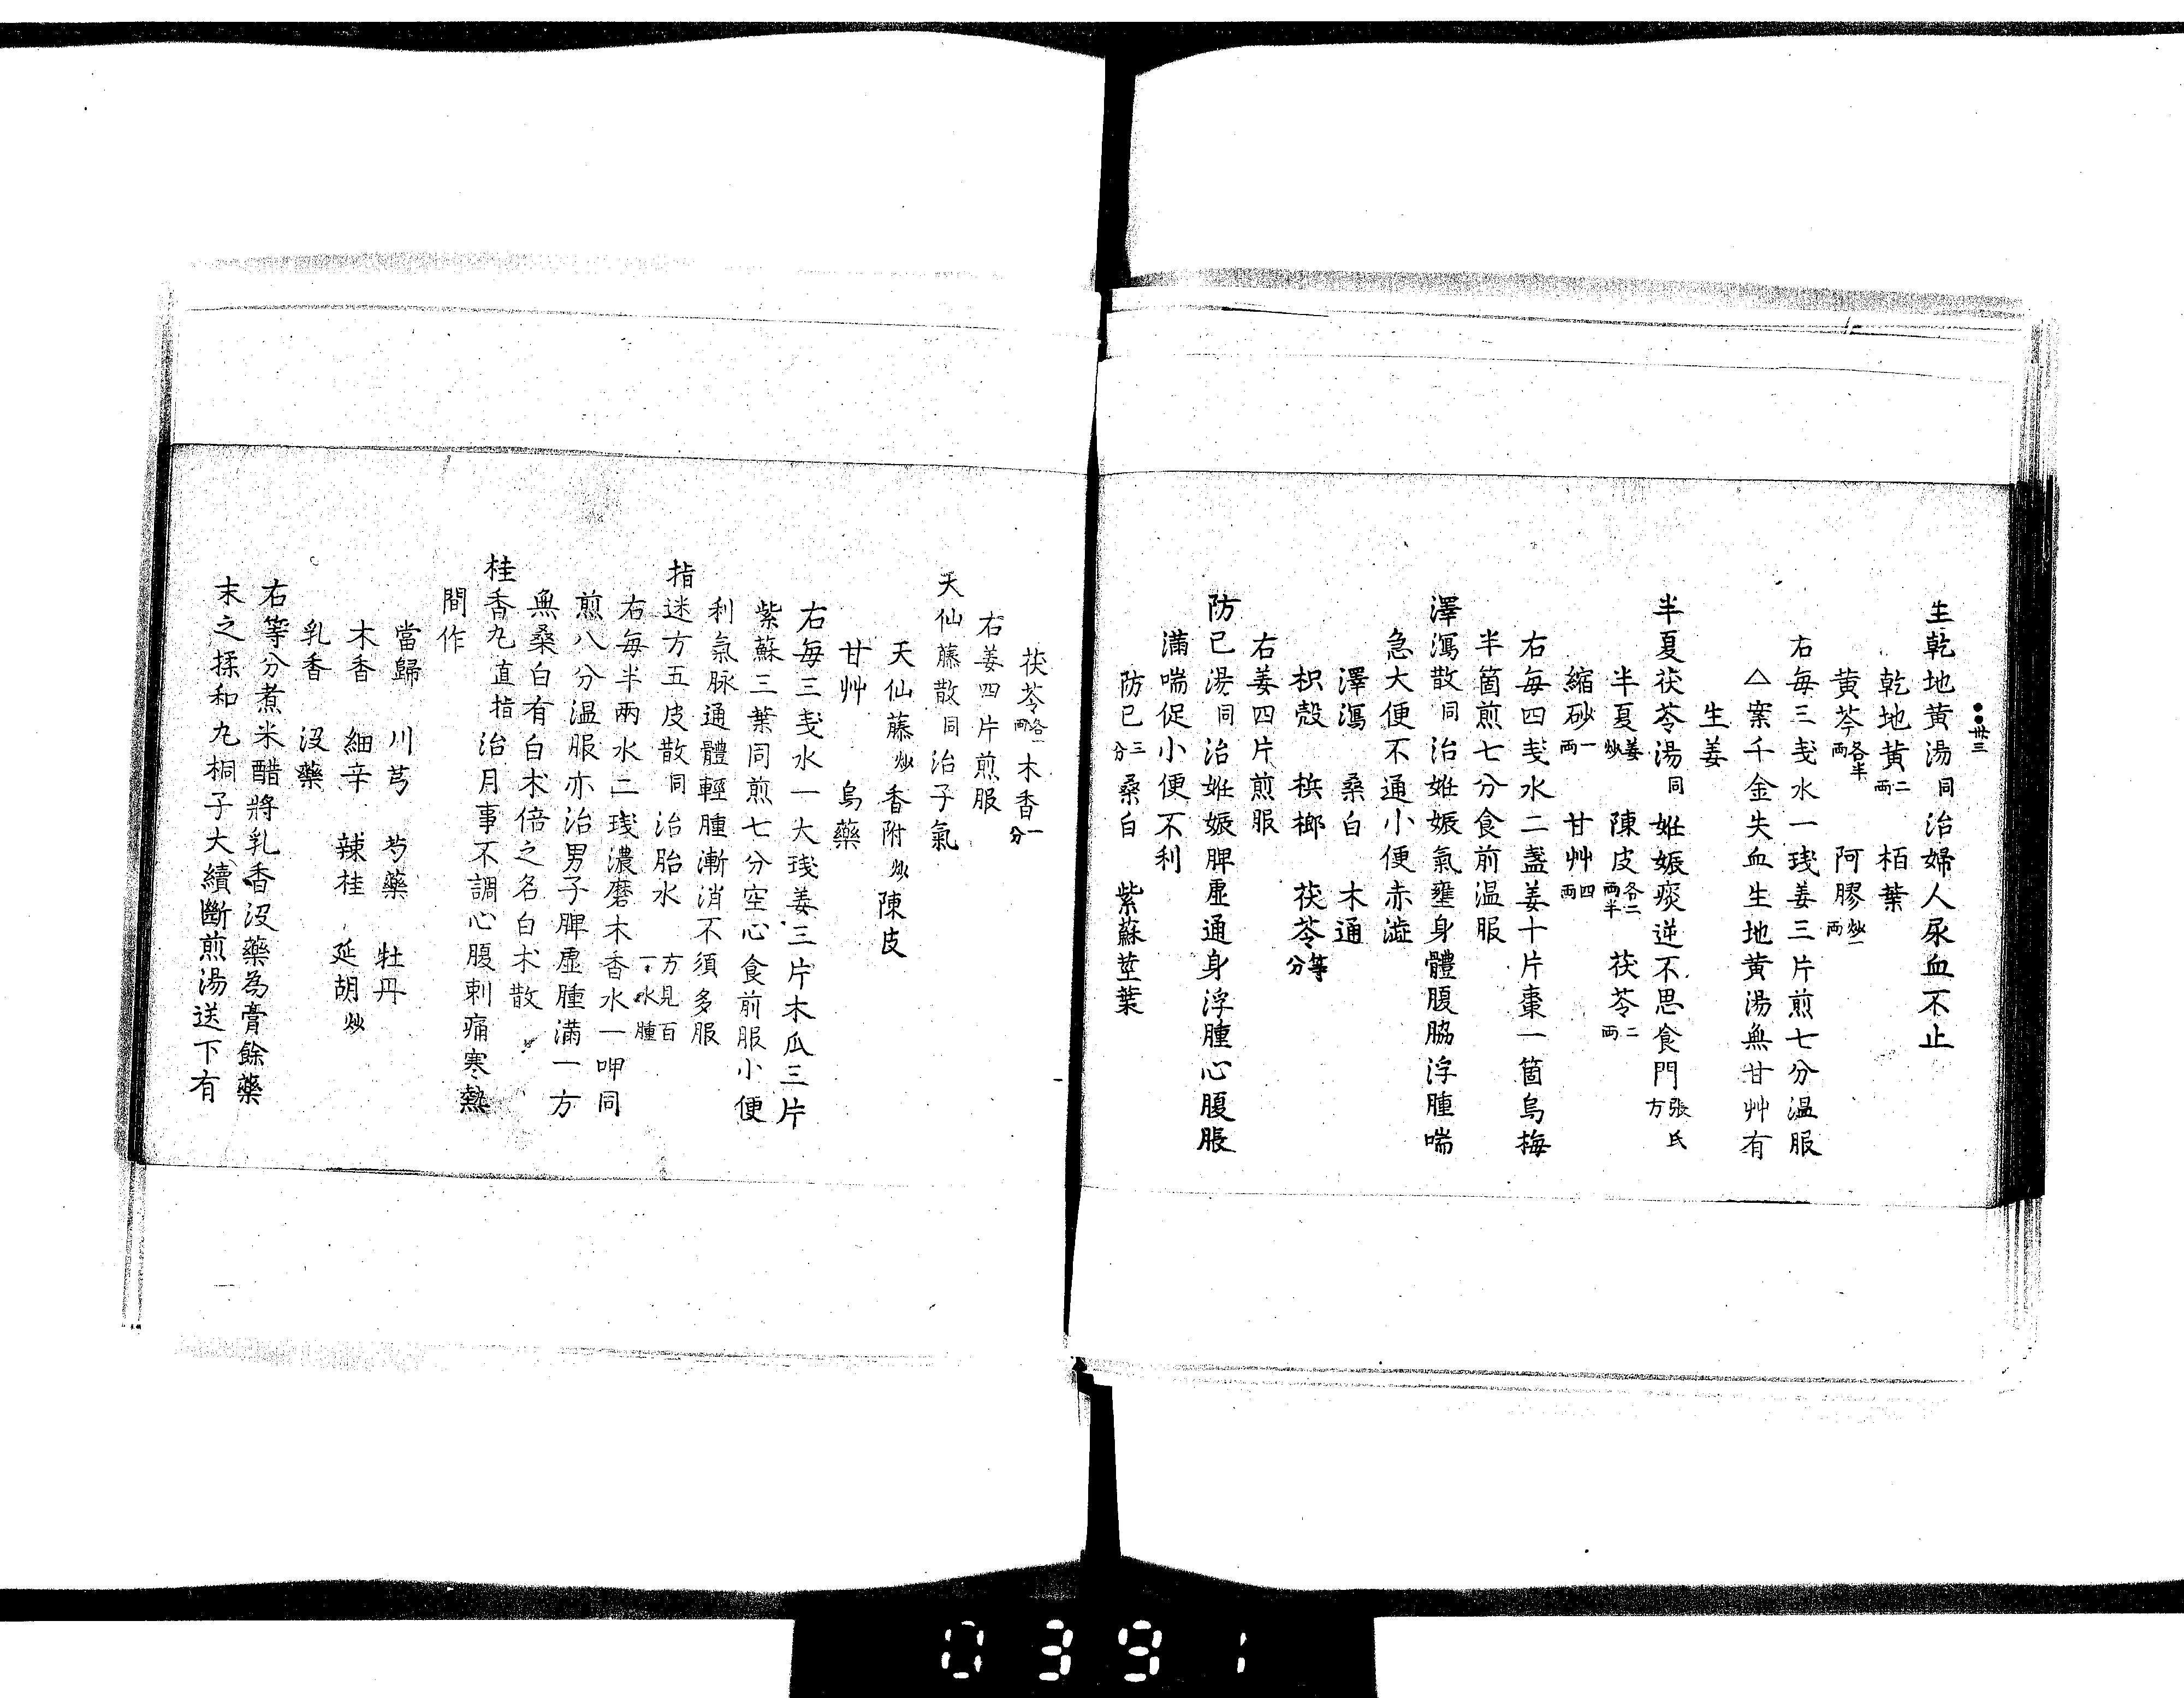 卅三
生乾地黄湯同治婦人尿血不止
乾地黄二两 栢葉
黄芩各半两 阿膠炒一两
右毎三戔水一琖姜三片煎七分温服
△案千金失血生地黄湯無甘艸有
生姜
半夏茯苓湯同姙娠痰逆不思食門張氏方
半夏姜炒 陳皮各二两半 茯苓二两
縮砂一两 甘艸四两
右毎四戔水二盞姜十片棗一箇烏梅
半箇煎七分食前温服
澤瀉散同治姙娠氣壅身體腹脇浮腫喘
急大便不通小便赤澁
澤瀉 桑白 木通
枳殻 梹榔 茯苓等分
右姜四片煎服
防已湯同治姙娠脾虚通身浮腫心腹脹
滿喘促小便不利
防已三分 桑白 紫蘇莖葉
茯苓各一两 木香一分
右姜四片煎服
天仙藤散同治子氣
天仙藤炒 香附炒 陳皮
甘艸 烏藥
右毎三戔水一大琖姜三片木瓜三片
紫蘇三葉同煎七分空心食前服小便
利氣脉通體輕腫漸消不須多服
指迷方五皮散同治胎水 方見百一水腫
右毎半兩水二琖濃磨木香水一呷同
煎八分温服亦治男子脾虚腫滿一方
無桑白有白朮倍之名白朮散
桂香丸直指治月事不調心腹刺痛寒熱
間作
當歸 川芎 芍藥 牡丹
木香 細辛 辣桂 延胡炒
乳香 沒藥
右等分煮米醋將乳香沒藥為膏餘藥
末之揉和丸桐子大續斷煎湯送下有
0391